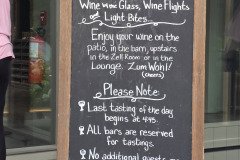 Wine by the Glass, Wine Flights
and Light Bites
Enjoy your wine on the
patio, in the barn, upstairs
in the Zell Room or in the
Lounge. Zum Wohl!
(cheers)
Please Note:
Last tasting of the day
begins at 4:45.
All bars are reserved
for tastings.
No additional guests